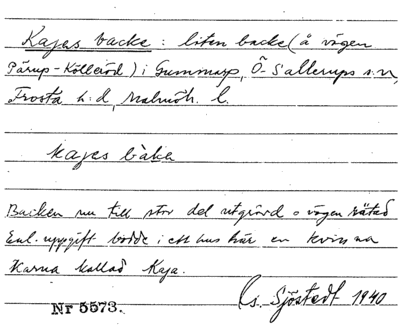 Kajes backe : liten backe (å vägen
Pärup-Kölleröd) i Gummarp, Ö-Sallerups s:n,
Frosta h:d, Malmöh. l.
kajes bake
Backen nu till stor del utgrävd o vägen rätad
Enl. uppgift bodde i ett hus här en kvinna
Karna kallad Kaja.
Nr 5573.
Gs. Sjöstedt 1940